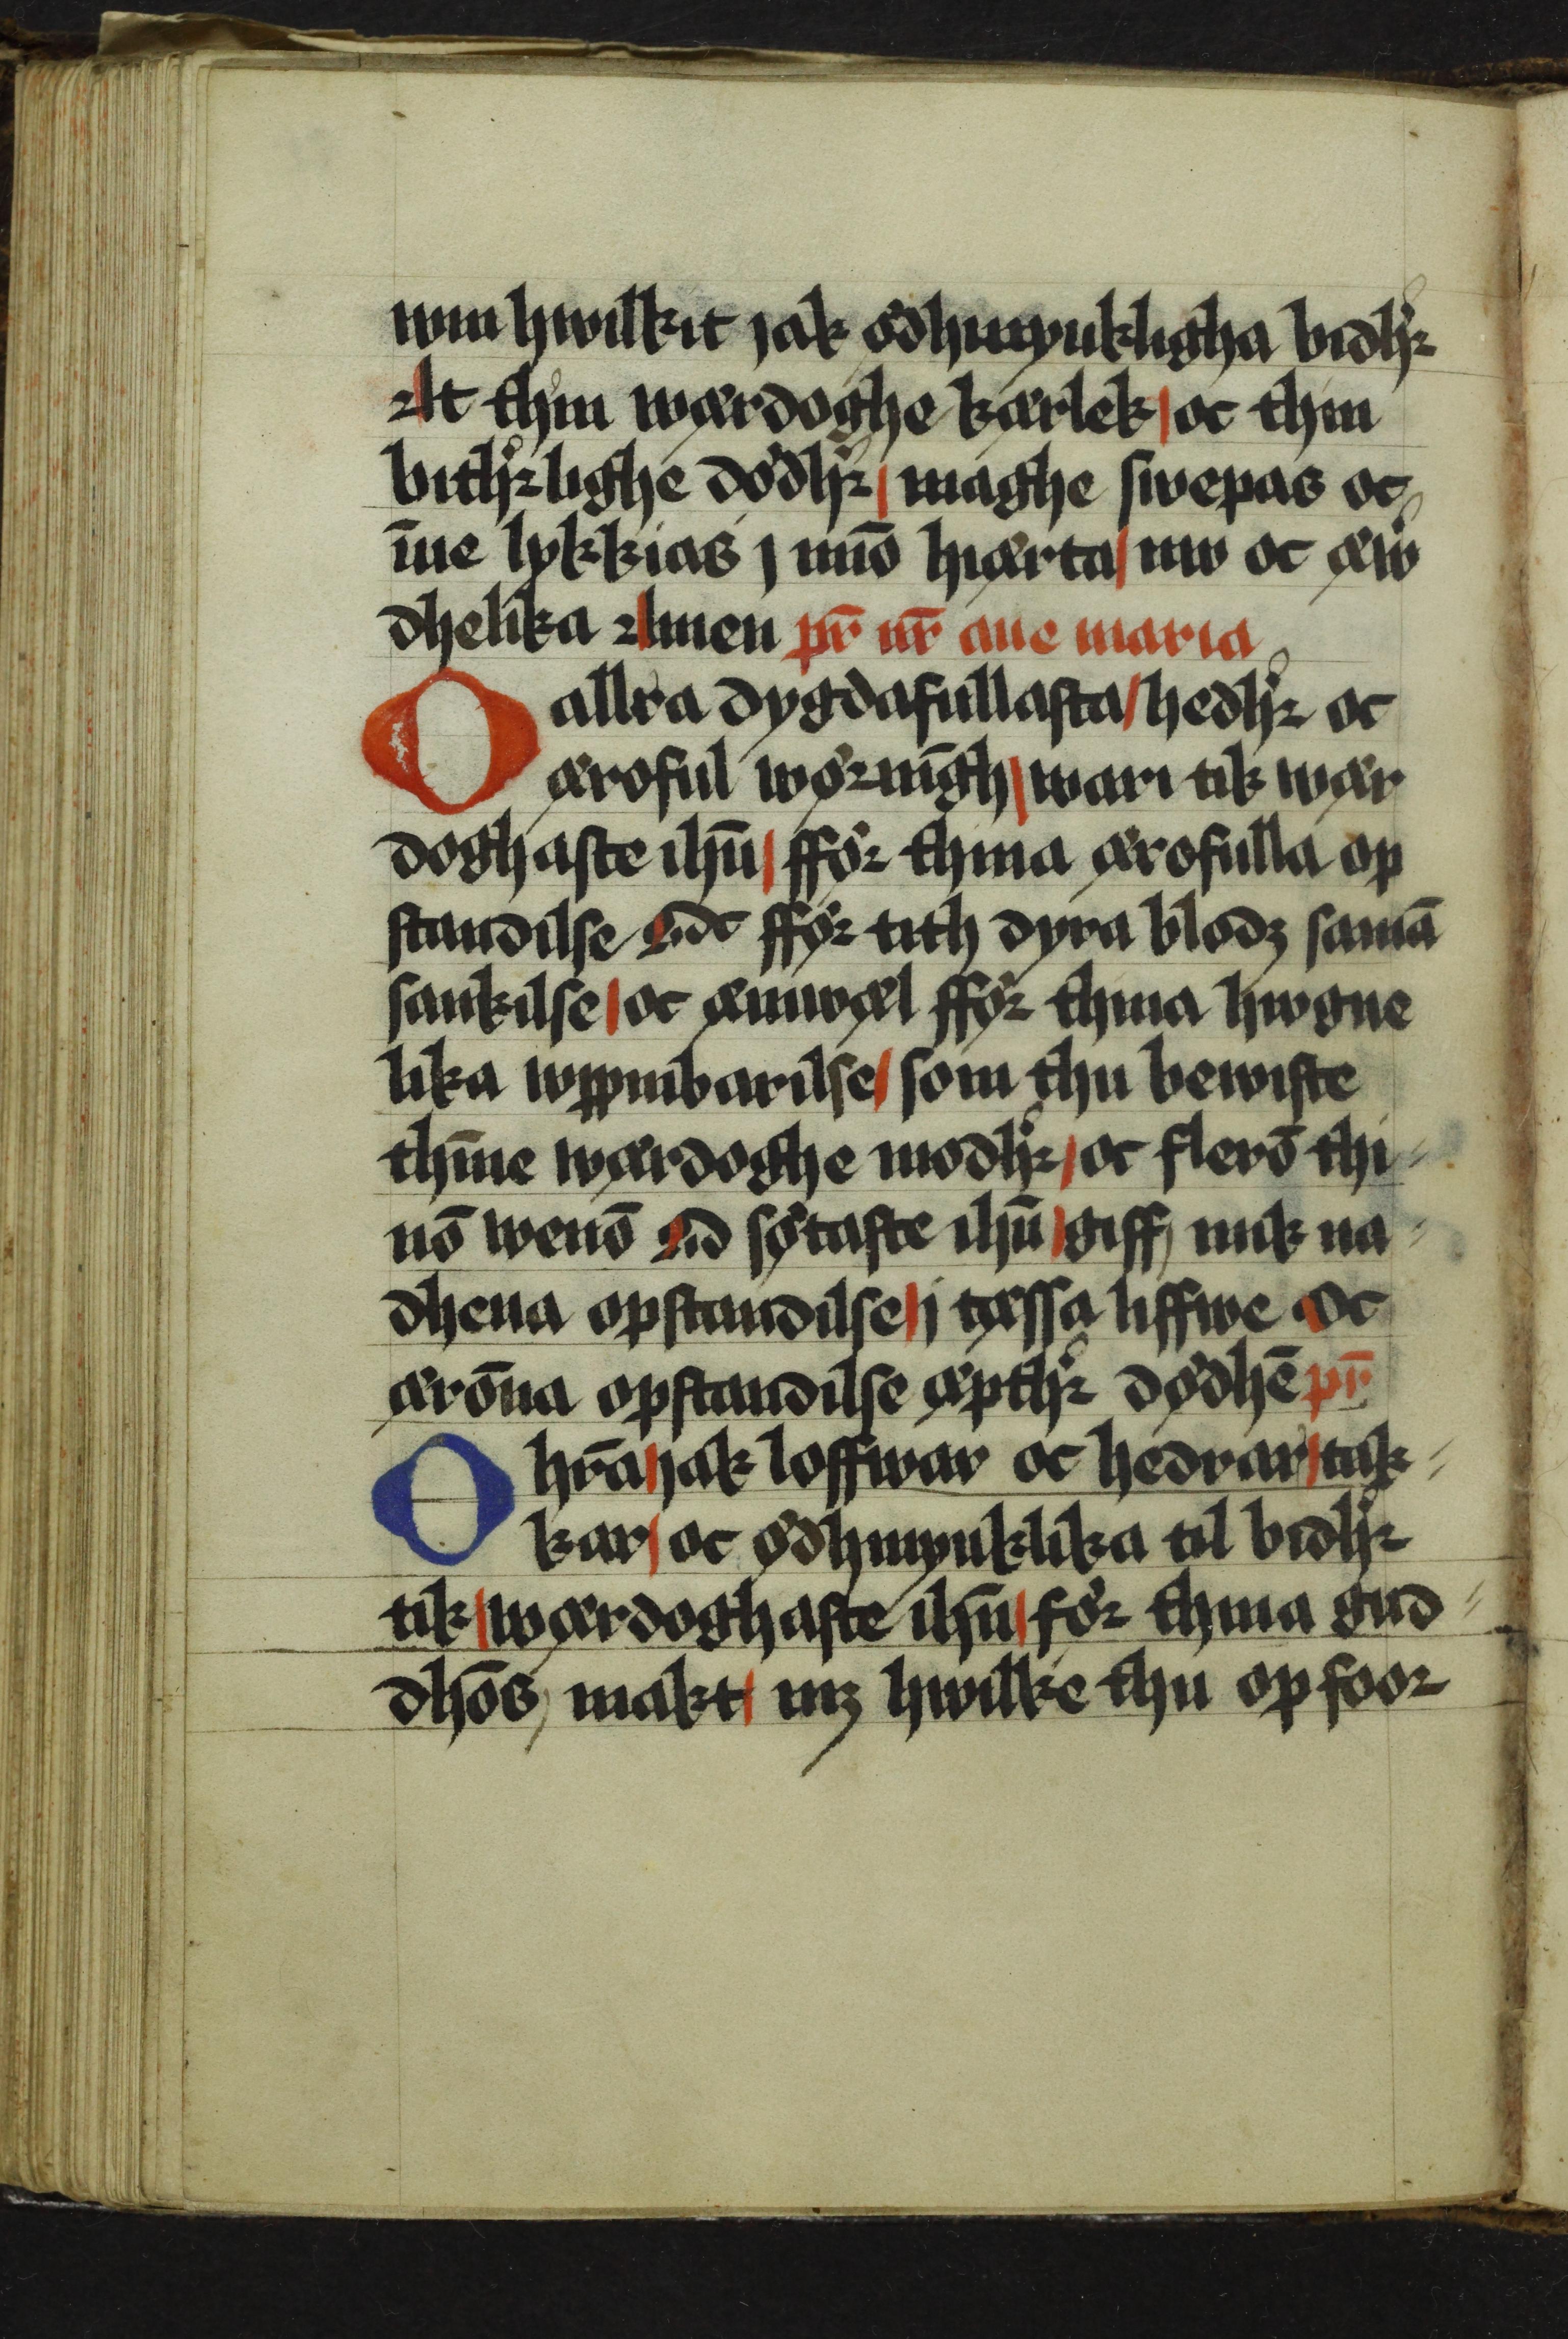 wm hwilkit jak ødhmyukligha bidhr
At thin wærdoghe kærlek oc thin
bithrlighe dødhr maghe swepas oc
īne lykkias j mīō hiærta nw oc æw
dhelika Amen pr̄ nr̄ aue maria
O allra dygdafullasta hedhr oc
æroful wørnīgh wari tik wær
doghaste ihū ffør thina ærofulla op
standilse Oc ffør tith dyra blodz samā
sankilse oc æmwæl ffør thina hwgne
lika wppinbarilse som thu bewiste
thīne wærdoghe modhr oc flerō thi
nō wenō O søtaste ihū giff mik na
dhena opstandilse j tæssa liffwe Oc
ærōna opstandilse æpthr dødhē pr̄
O hr̄a jak loffwar oc hedrar tak
kar oc ødhmyuklika til bidhr
tik wærdoghaste ihū før thina gud
dhōs makt mz hwilke thu opfoor